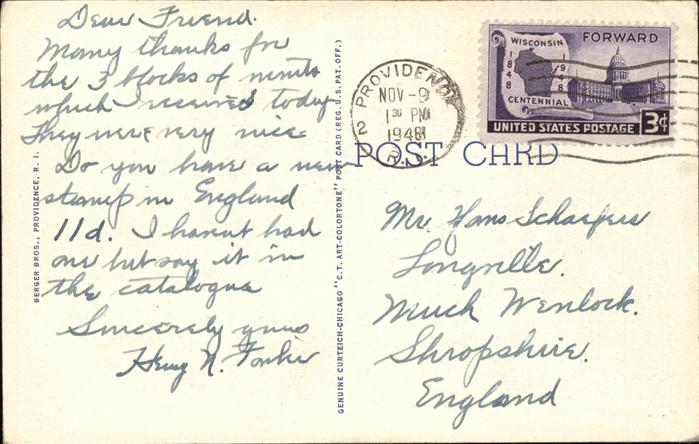 Dear Friend.
Many thanks for
the 3 blocks of mints
which I received today
They were very nice
Do you have a new
stamp in England
11d. I havent had
one but say it in
the catalogue
Sincerely yours
Henry N.
BERGER BROS., PROVIDENCE, R. I.
GENUINE CURTEICH-CHICAGO "C.T. ART-COLORTONE" POST CARD (REG. U.S. PAT. OFF.)
PROVIDENCE
NOV -9
1 30 PM
1948
2 R.I.
WISCONSIN FORWARD
1848 1948
CENTENNIAL
UNITED STATES POSTAGE 3¢
POST CARD
Mr. Hans Schaefers
Longville.
Much Wenlock.
Shropshire.
England